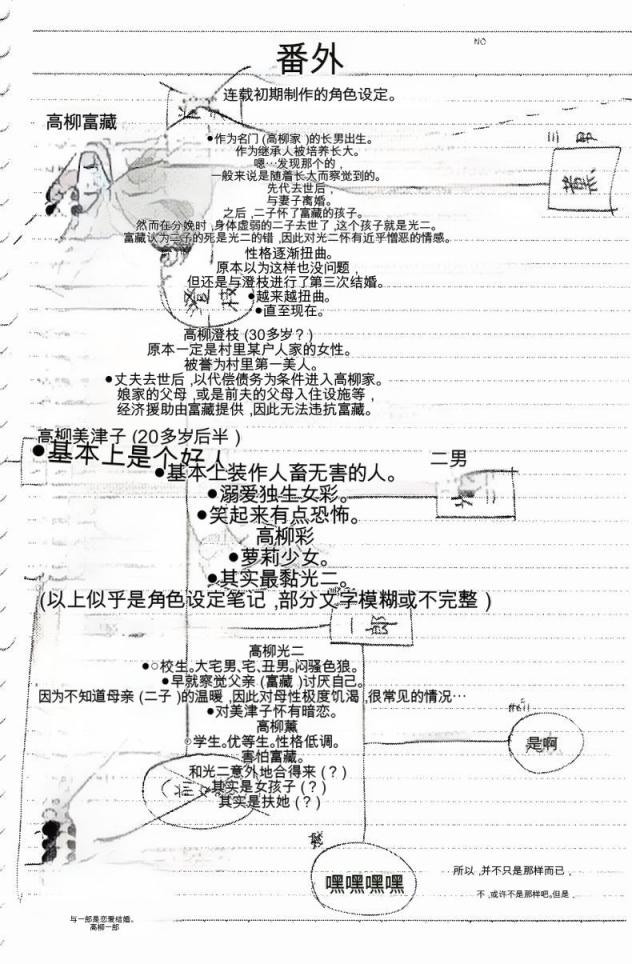 番外
NO
连载初期制作的角色设定。
高柳富藏
三郎
薫
●作为名门(高柳家)的长男出生。
作为继承人被培养长大。
嗯…发现那个的,
一般来说是随着长大而察觉到的。
先代去世后,
与妻子离婚。
之后,二子怀了富藏的孩子。
然而在分娩时,身体虚弱的二子去世了,这个孩子就是光二。
富藏认为二子的死是光二的错,因此对光二怀有近乎憎恶的情感。
性格逐渐扭曲。
原本以为这样也没问题,
但还是与澄枝进行了第三次结婚。
●越来越扭曲。
●直至现在。
枝
高柳澄枝(30多岁?)
原本一定是村里某户人家的女性。
被誉为村里第一美人。
●丈夫去世后,以代偿债务为条件进入高柳家。
娘家的父母,或是前夫的父母入住设施等,
经济援助由富藏提供,因此无法违抗富藏。
高柳美津子(20多岁后半)
●基本上是个好人
●基本上装作人畜无害的人。
二男
●溺爱独生女彩。
●笑起来有点恐怖。
高柳彩
●萝莉少女。
●其实最黏光二。
(以上似乎是角色设定笔记,部分文字模糊或不完整)
一郎
高柳光二
●○校生。大宅男、宅、丑男。闷骚色狼。
●早就察觉父亲(富藏)讨厌自己。
因为不知道母亲(二子)的温暖,因此对母性极度饥渴,很常见的情况…
●对美津子怀有暗恋。
高柳薰
○学生。优等生。性格低调。
害怕富藏。
和光二意外地合得来(?)
其实是女孩子(?)
其实是扶她(?)
是啊
嘿嘿嘿嘿
所以,并不只是那样而已,
不,或许不是那样吧。但是,
与一郎是恋爱结婚。
高柳一郎